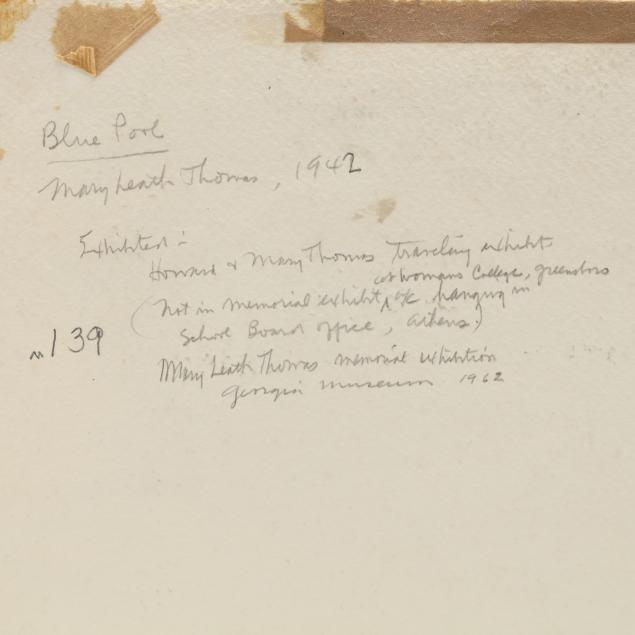 Blue Pool
Mary Leath Thomas, 1942
Exhibited:-
Howard & Mary Thomas Traveling exhibit
at Womans College, Greensboro
(Not in memorial exhibit, hanging in
School Board office, Athens.)
M139
Mary Leath Thomas memorial exhibition
Georgia Museum 1962